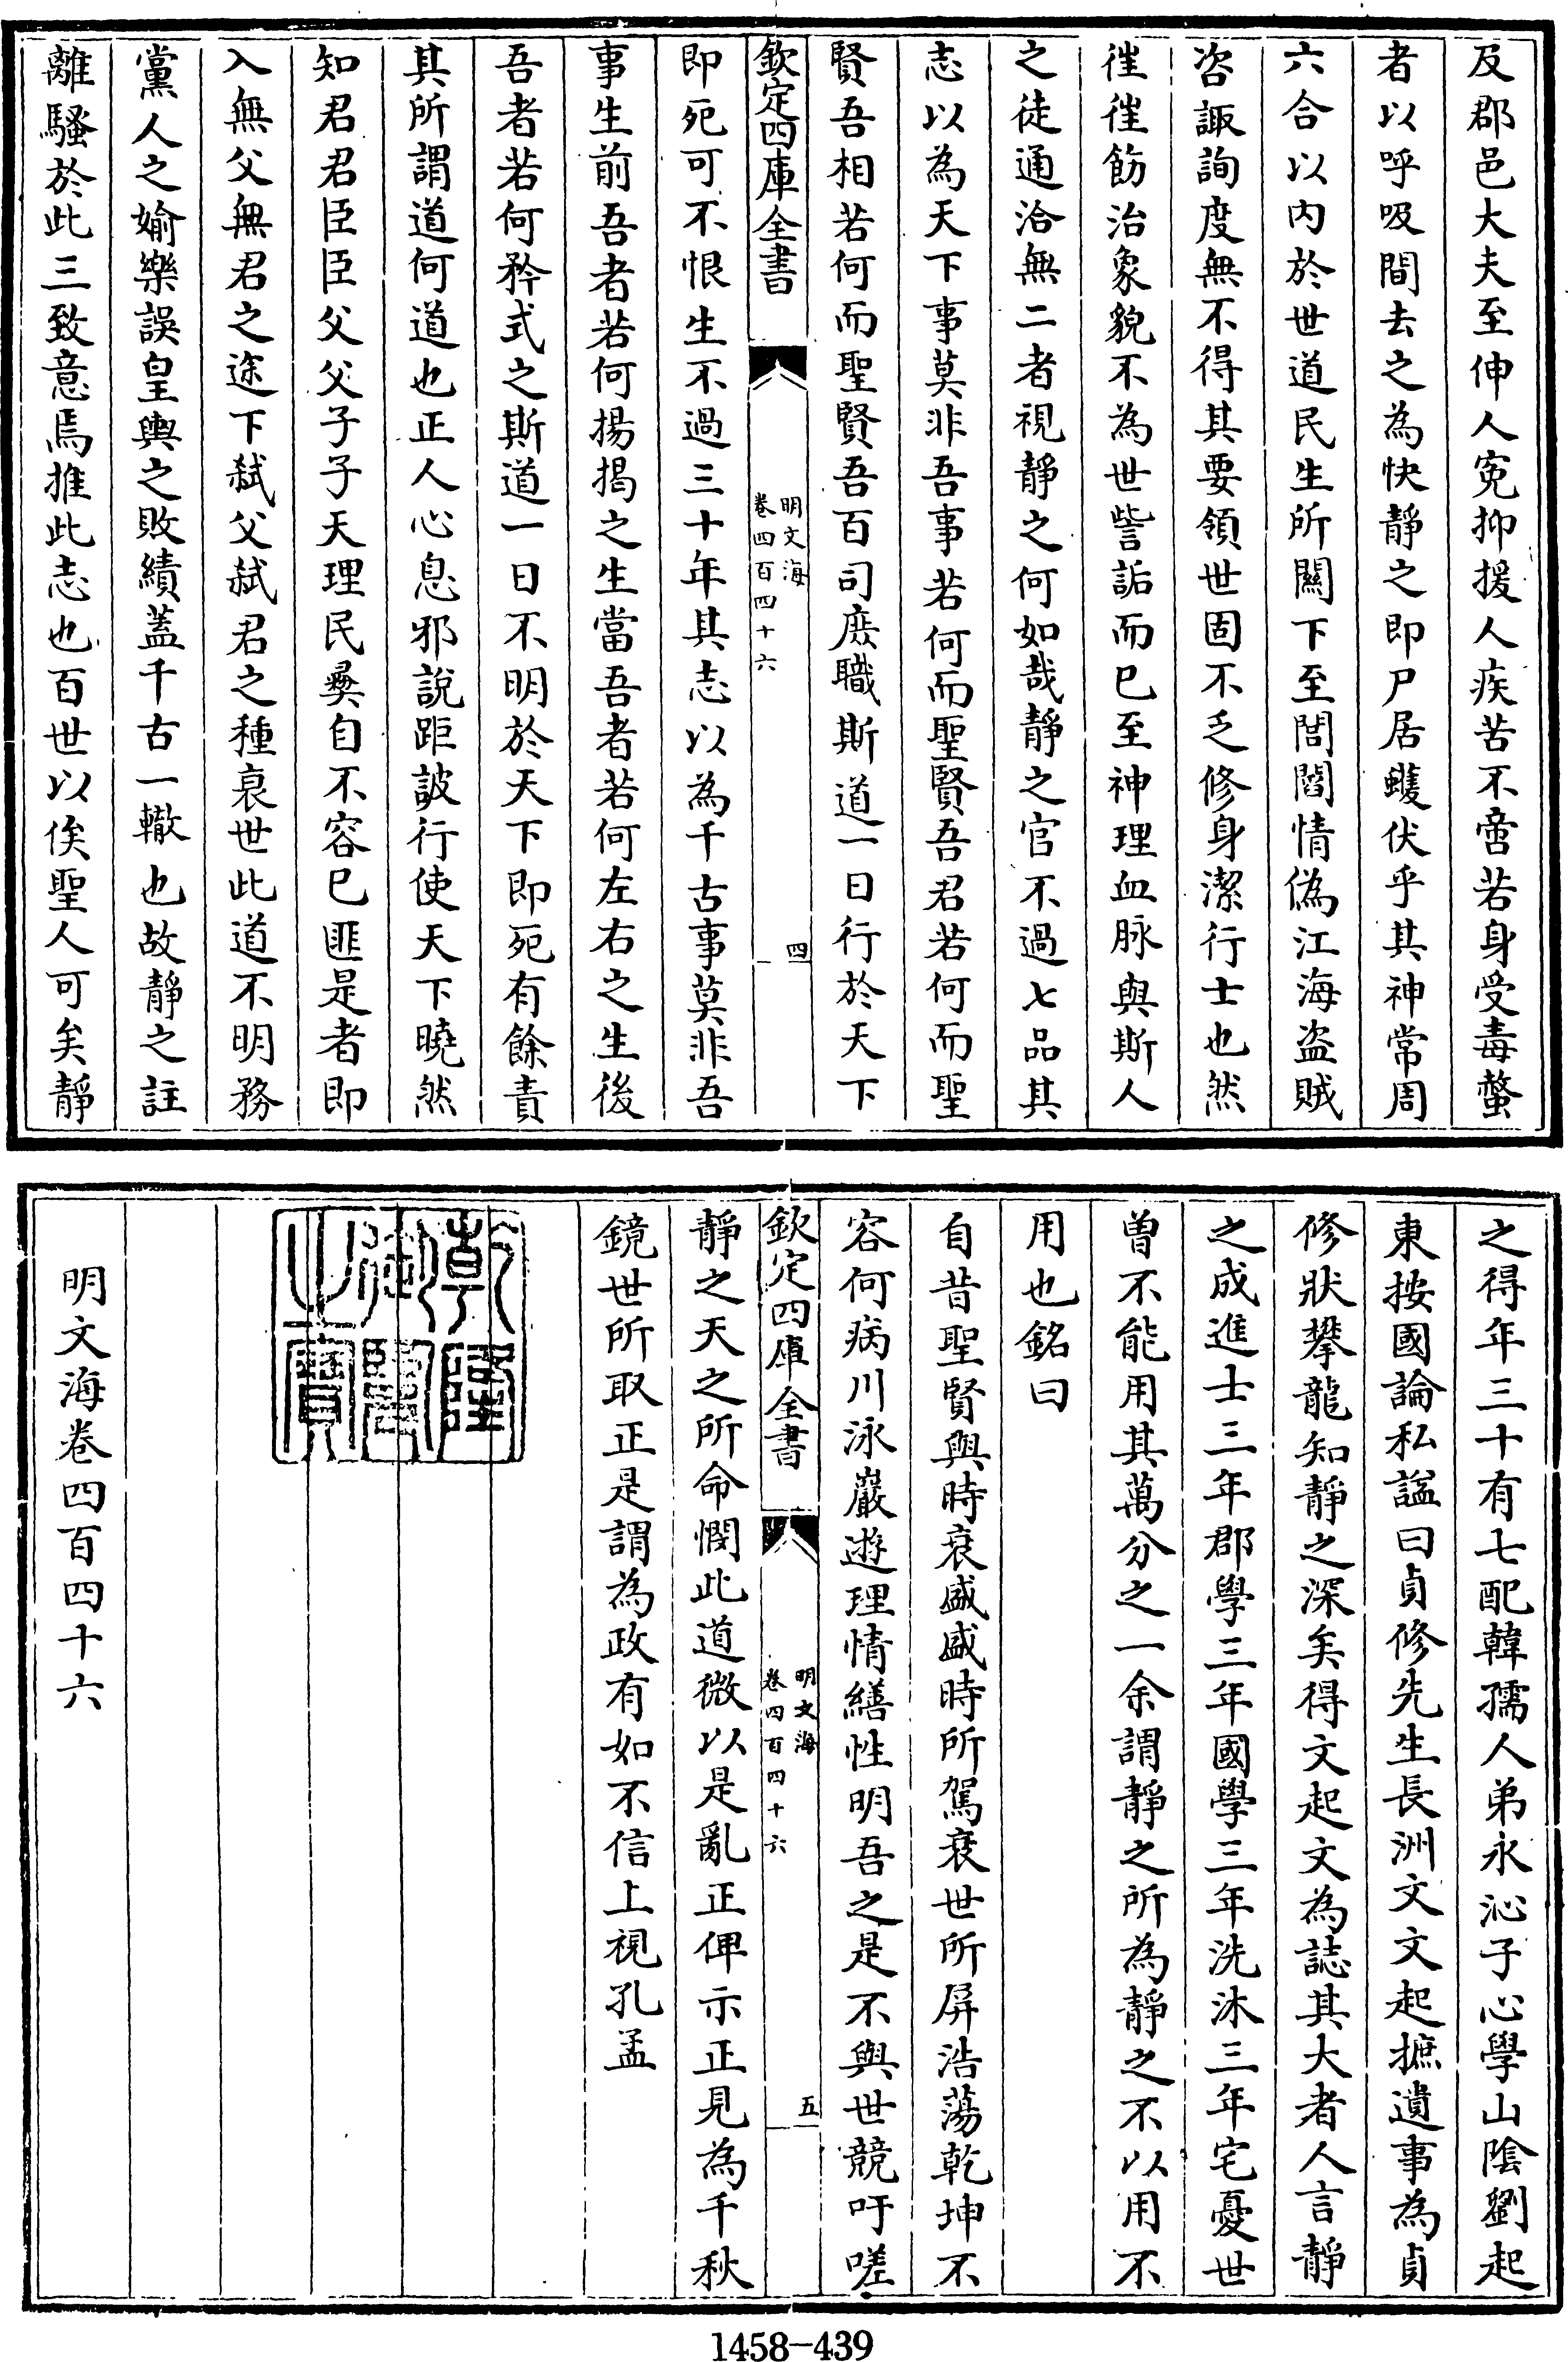 及郡邑大夫至伸人寃抑援人疾苦不啻若身受毒螫
者以呼吸間去之為快靜之即尸居蠖伏乎其神常周
六合以内於世道民生所關下至閭閻情偽江海盗賊
咨諏詢度無不得其要領世固不乏修身潔行士也然
徃徃飭治象貌不為世訾詬而已至神理血脉與斯人
之徒通洽無二者視靜之何如哉靜之官不過七品其
志以為天下事莫非吾事若何而聖賢吾君若何而聖
賢吾相若何而聖賢吾百司庶職斯道一日行於天下
欽定四庫全書
明文海
卷四百四十六
四
即死可不恨生不過三十年其志以為千古事莫非吾
事生前吾者若何揚揭之生當吾者若何左右之生後
吾者若何矜式之斯道一日不明於天下即死有餘責
其所謂道何道也正人心息邪説距詖行使天下曉然
知君君臣臣父父子子天理民彞自不容已匪是者即
入無父無君之途下弑父弑君之種哀世此道不明務
黨人之婾樂誤皇輿之敗績蓋千古一轍也故靜之註
離騷於此三致意焉推此志也百世以俟聖人可矣靜
之得年三十有七配韓孺人弟永沁子心學山陰劉起
東按國論私諡曰貞修先生長洲文文起摭遺事為貞
修狀攀龍知靜之深矣得文起文為誌其大者人言靜
之成進士三年郡學三年國學三年洗沐三年宅憂世
曽不能用其萬分之一余謂靜之所為靜之不以用不
用也銘曰
自昔聖賢與時衰盛盛時所駕衰世所屏浩蕩乾坤不
容何病川泳巖遊理情繕性明吾之是不與世競吁嗟
欽定四庫全書
明文海
卷四百四十六
五
靜之天之所命憫此道微以是亂正俾示正見為千秋
鏡世所取正是謂為政有如不信上視孔孟
乾隆
御覽
之寶
明文海卷四百四十六
1458-439